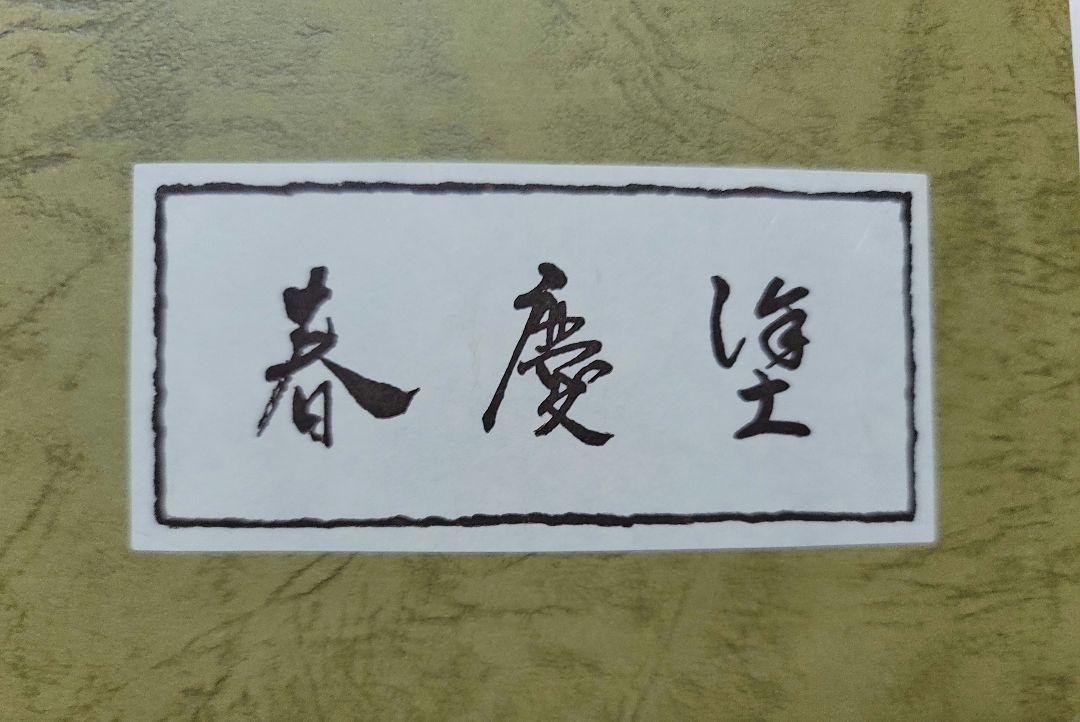 春慶塗